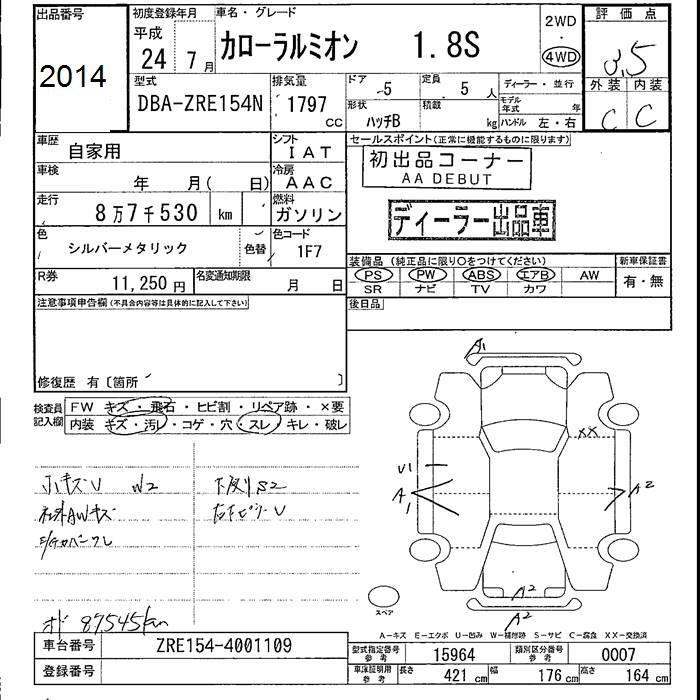 出品番号
2014
初度登録年月
平成
24 7月
車名・グレード
カローラルミオン 1.8S
2WD
・
4WD
評価点
3.5
外装 内装
C C
型式
DBA-ZRE154N
排気量
1797 CC
ドア
5
定員
5 人
ディーラー・並行
形状
ハッチB
積載
kg
モデル年式 年
ハンドル 左・右
車歴
自家用
シフト
IAT
車検
年 月( 日)
冷房
AAC
走行
8万7千530 km
燃料
ガソリン
色
シルバーメタリック
色替
色コード
1F7
R券
11,250 円
名変通知期限
月 日
セールスポイント(正常に機能するものに限ります)
初出品コーナー
AA DEBUT
ディーラー出品車
装備品 (純正品に限り○をつけてください)
PS PW ABS エアB AW
SR ナビ TV カワ
新車保証書
有・無
後日品
注意事項申告欄(不具合内容等は具体的に記入して下さい)
修復歴 有〔箇所 〕
検査員記入欄
FW キズ・飛石・ヒビ割・リペア跡・×要
内装 キズ・汚レ・コゲ・穴・スレ・キレ・破レ
小キズU W2
下廻りS2
社外AWキズ
オド 87545km
A1
XX
U1
A1
A2
A2
A2
スペア
A-キズ E-エクボ U-凹み W-補修跡 S-サビ C-腐食 XX-交換済
車台番号
ZRE154-4001109
登録番号
型式指定番号
参考
15964
類別区分番号
参考
0007
車庫証明用
参考
長さ
421 cm
幅
176 cm
高さ
164 cm